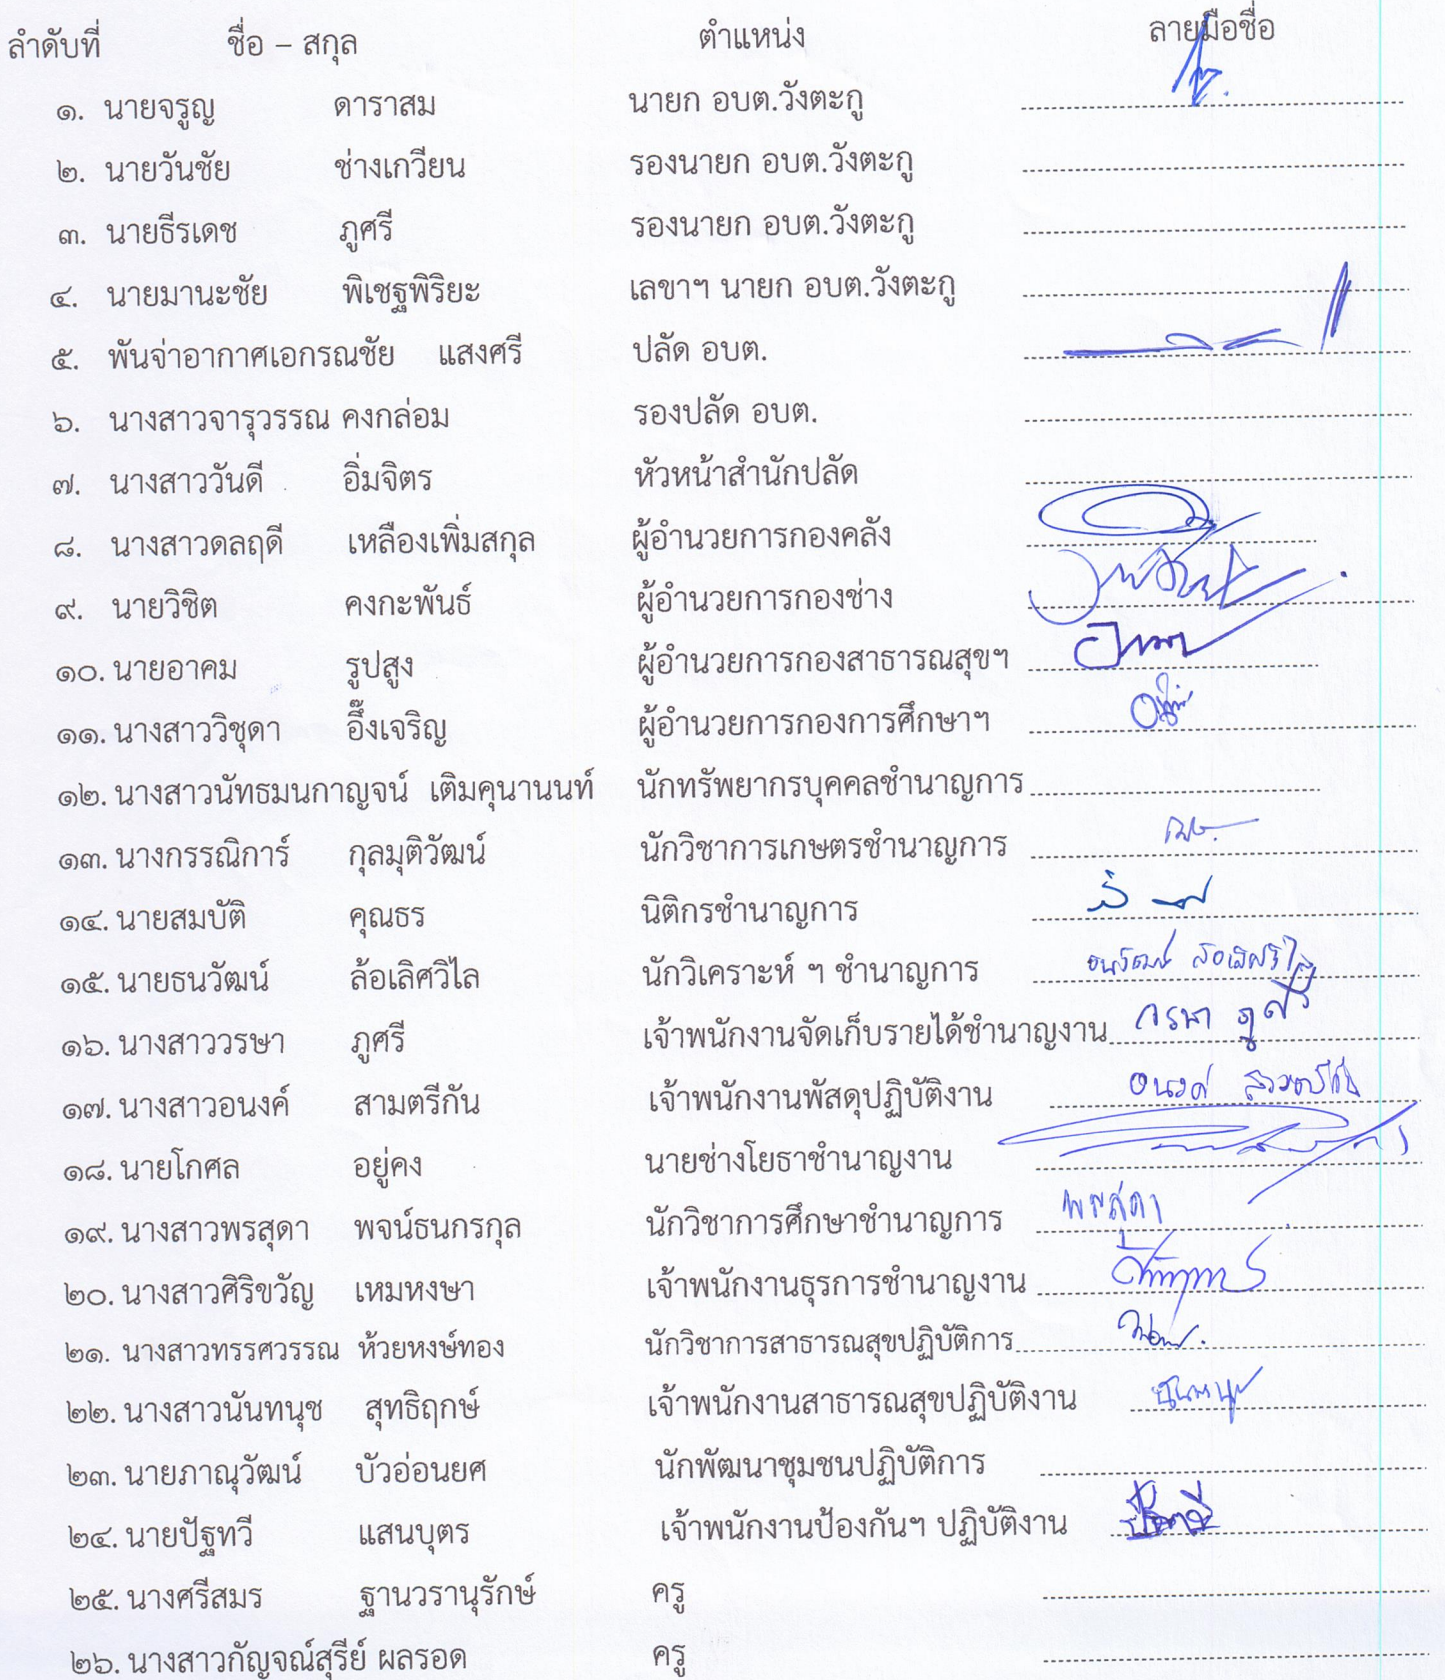 ลำดับที่ ชื่อ – สกุล ตำแหน่ง ลายมือชื่อ
๑. นายจรูญ ดาราสม นายก อบต.วังตะกู
๒. นายวันชัย ช่างเกวียน รองนายก อบต.วังตะกู
๓. นายธีรเดช ภูศรี รองนายก อบต.วังตะกู
๔. นายมานะชัย พิเชฐพิริยะ เลขาฯ นายก อบต.วังตะกู
๕. พันจ่าอากาศเอกรณชัย แสงศรี ปลัด อบต.
๖. นางสาวจารุวรรณ คงกล่อม รองปลัด อบต.
๗. นางสาววันดี อิ่มจิตร หัวหน้าสำนักปลัด
๘. นางสาวดลฤดี เหลืองเพิ่มสกุล ผู้อำนวยการกองคลัง
๙. นายวิชิต คงกะพันธ์ ผู้อำนวยการกองช่าง
๑๐. นายอาคม รูปสูง ผู้อำนวยการกองสาธารณสุขฯ
๑๑. นางสาววิชุดา อึ๊งเจริญ ผู้อำนวยการกองการศึกษาฯ
๑๒. นางสาวนัทธมนกาญจน์ เติมคุนานนท์ นักทรัพยากรบุคคลชำนาญการ
๑๓. นางกรรณิการ์ กุลมุติวัฒน์ นักวิชาการเกษตรชำนาญการ
๑๔. นายสมบัติ คุณธร นิติกรชำนาญการ
๑๕. นายธนวัฒน์ ล้อเลิศวิไล นักวิเคราะห์ ฯ ชำนาญการ ธนวัฒน์ ล้อเลิศวิไล
๑๖. นางสาววรษา ภูศรี เจ้าพนักงานจัดเก็บรายได้ชำนาญงาน วรษา ภูศรี
๑๗. นางสาวอนงค์ สามตรีกัน เจ้าพนักงานพัสดุปฏิบัติงาน อนงค์ สามตรีกัน
๑๘. นายโกศล อยู่คง นายช่างโยธาชำนาญงาน
๑๙. นางสาวพรสุดา พจน์ธนกรกุล นักวิชาการศึกษาชำนาญการ พรสุดา
๒๐. นางสาวศิริขวัญ เหมหงษา เจ้าพนักงานธุรการชำนาญงาน
๒๑. นางสาวทรรศวรรณ ห้วยหงษ์ทอง นักวิชาการสาธารณสุขปฏิบัติการ
๒๒. นางสาวนันทนุช สุทธิฤกษ์ เจ้าพนักงานสาธารณสุขปฏิบัติงาน นันทนุช
๒๓. นายภาณุวัฒน์ บัวอ่อนยศ นักพัฒนาชุมชนปฏิบัติการ
๒๔. นายปัฐทวี แสนบุตร เจ้าพนักงานป้องกันฯ ปฏิบัติงาน ปัฐทวี
๒๕. นางศรีสมร ฐานวรานุรักษ์ ครู
๒๖. นางสาวกัญจณ์สุรีย์ ผลรอด ครู